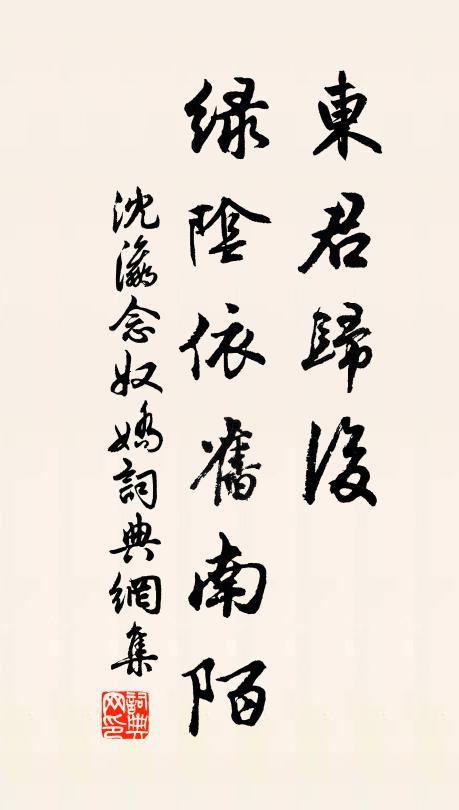 東君歸後
綠陰依舊南陌
沈瀛念奴嬌詞典網集
詞典網印